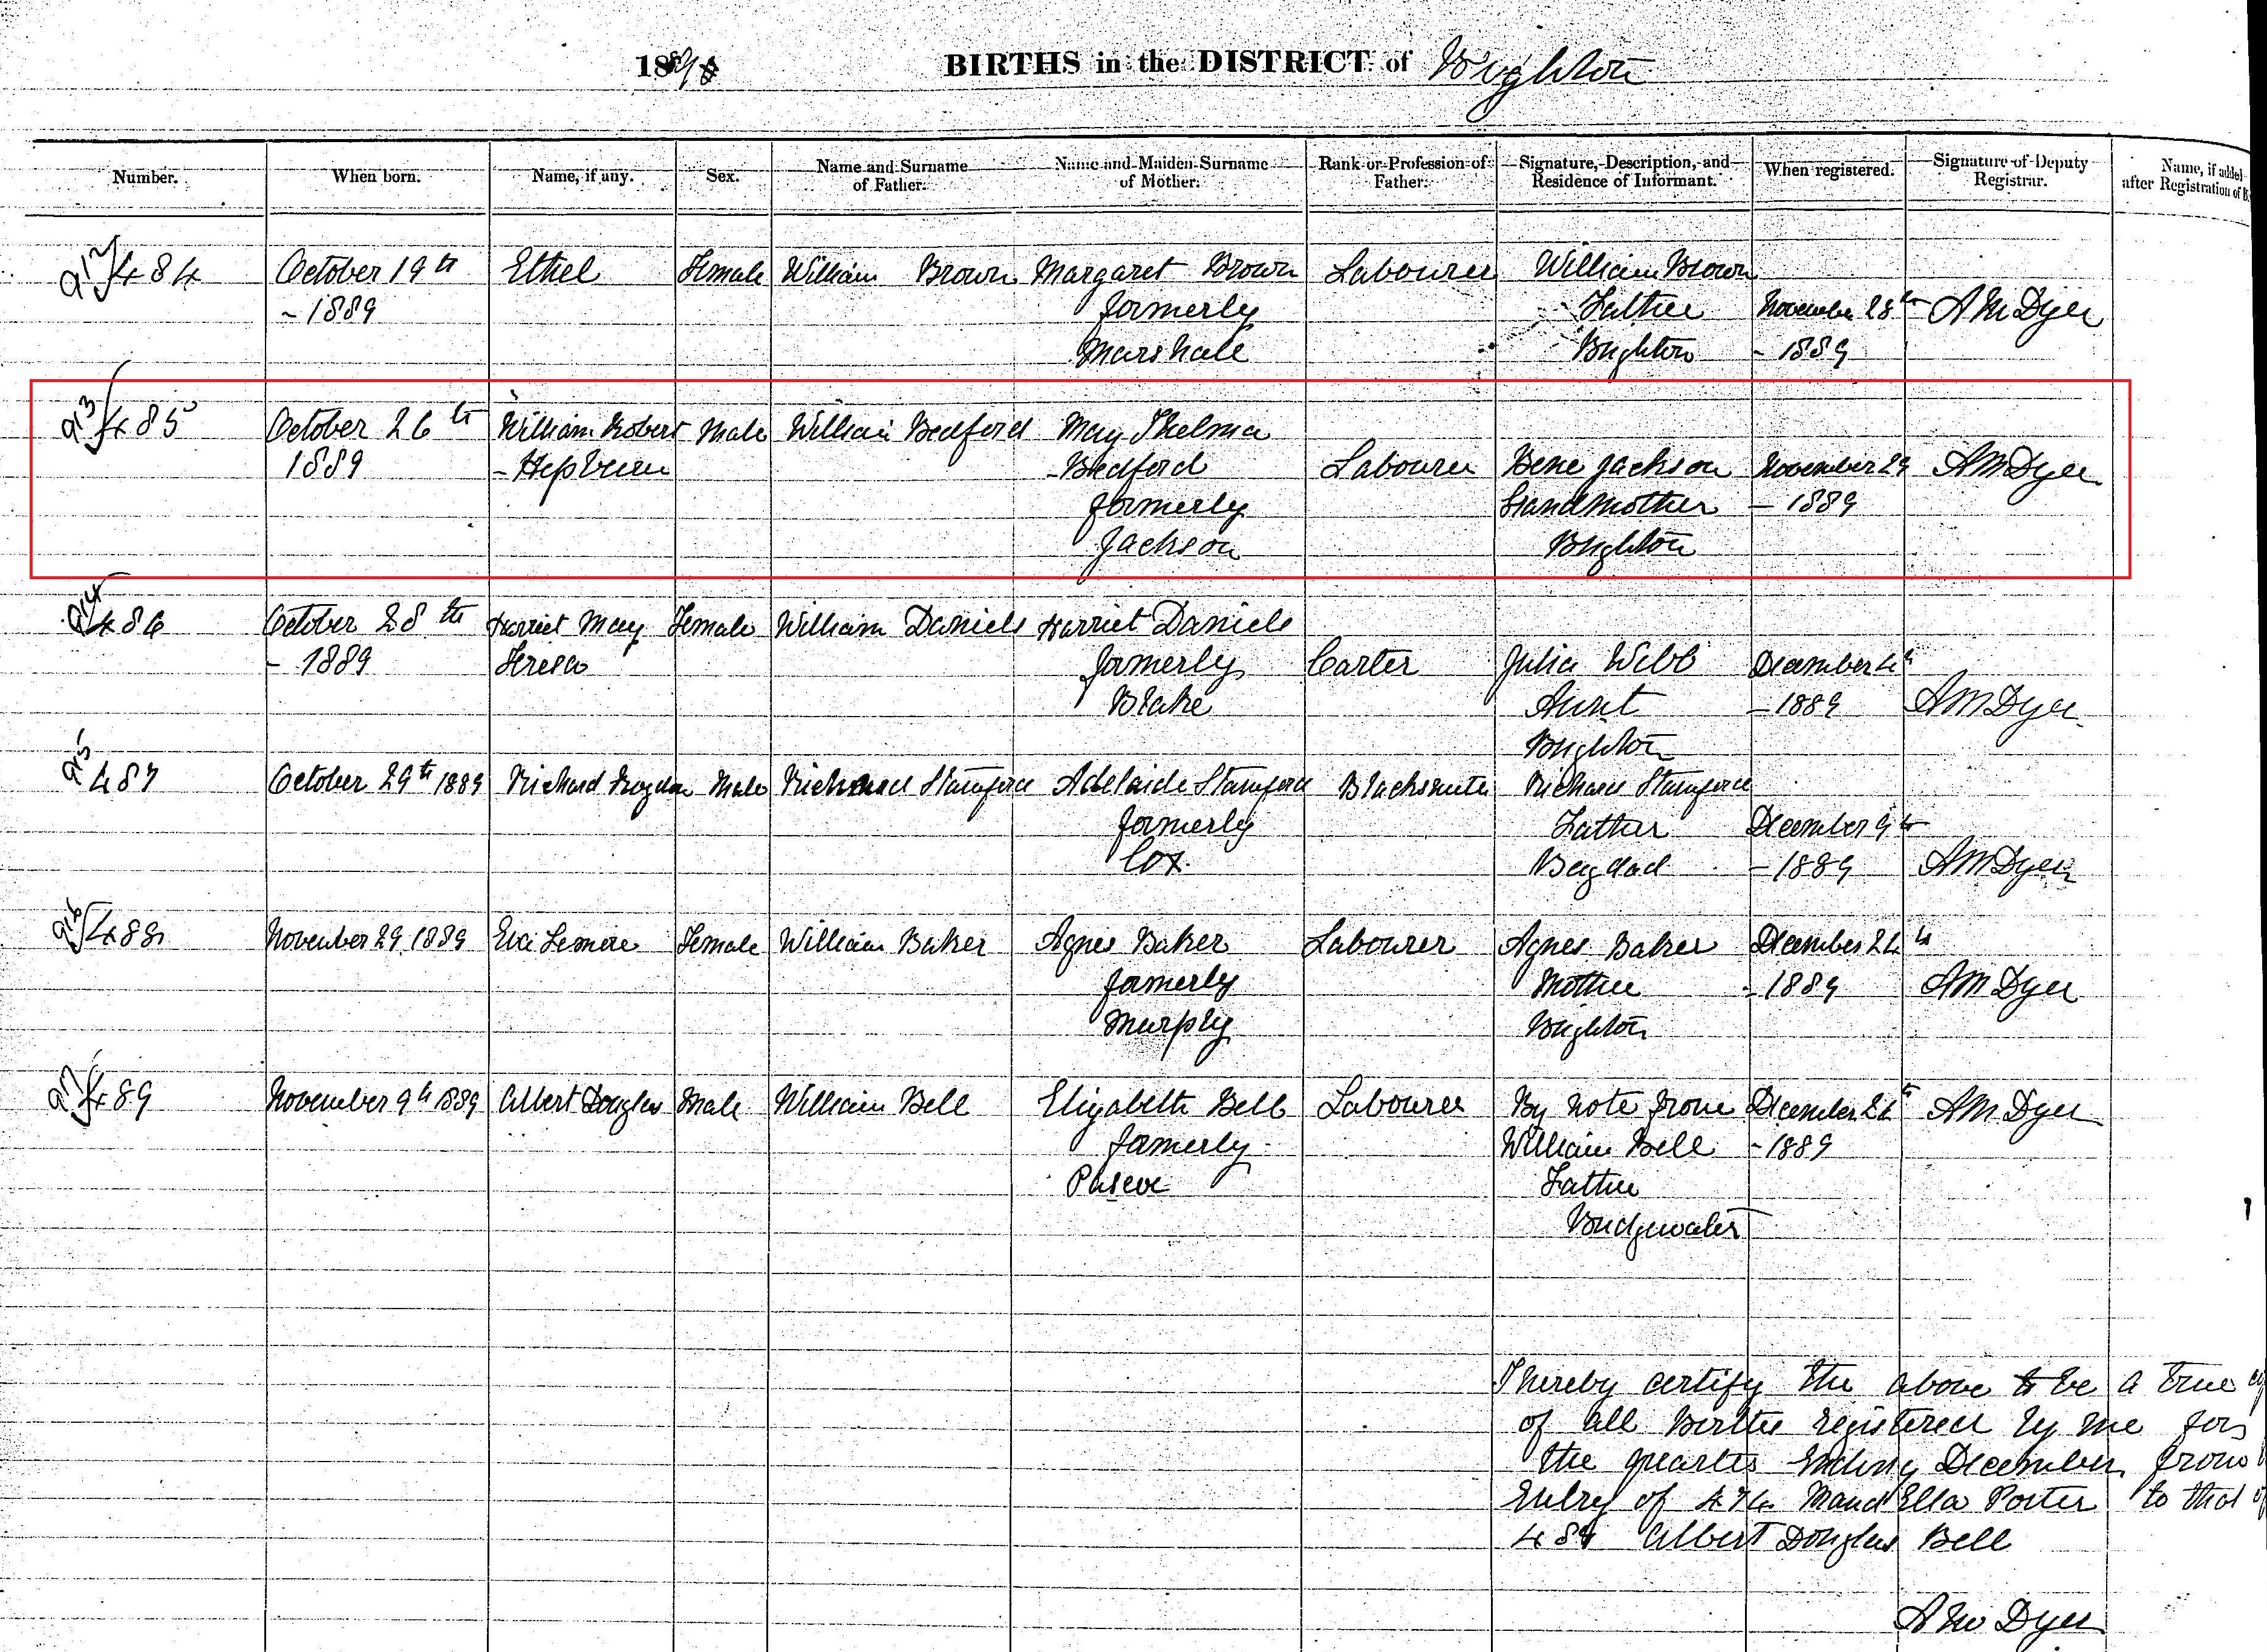 18
BIRTHS in the DISTRICT of Brighton
Number.
When born.
Name, if any.
Sex.
Name and Surname
of Father.
Name and Maiden Surname
of Mother.
Rank or Profession of
Father.
Signature, Description, and
Residence of Informant.
When registered.
Signature of Deputy
Registrar.
Name, if added
after Registration of
912 484 October 19th Ethel Female William Brown Margaret Brown Labourer William Brown
- 1889 formerly Father November 28th A M Dyer
Marshall Brighton - 1889
913 485 October 26th William Robert Male William Bedford May Thelma
1889 - Hepburn - Bedford Labourer Jackson November 29 A M Dyer
formerly Grandmother - 1889
Jackson Brighton
914 486 October 28th Harriet May Female William Daniels Harriet Daniels
- 1889 Teresa formerly Carter Julia Webb December 4th
Blake Aunt - 1889 A M Dyer
Brighton
915 487 October 29th 1889 Richard Male Richard Stamford Adelaide Stamford Blacksmith Richard Stamford
formerly Father December 9th
Cox Bagdad - 1889 A M Dyer
916 488 November 29 1889 Eva Female William Baker Agnes Baker Labourer Agnes Baker December 24th
formerly Mother - 1889 A M Dyer
Murphy Brighton
917 489 November 9th 1889 Albert Douglas Male William Bell Elizabeth Bell Labourer By note from December A M Dyer
formerly William Bell - 1889
Father
Bridgewater
I hereby certify the above to be a true
of all Births registered by me for
the quarter Ending December from
Entry of Maud Ella Porter to that
Albert Douglas Bell
A M Dyer